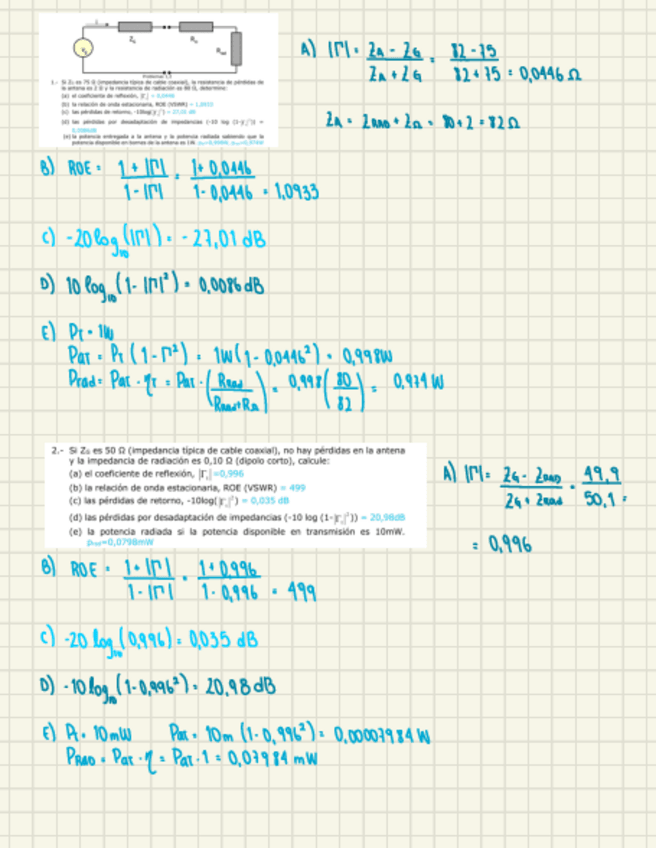 Z_G
R_Ω
R_rad
1.- Si Z_G es 75 Ω (impedancia típica de cable coaxial), la resistencia de pérdidas de
la antena es 2 Ω y la resistencia de radiación es 80 Ω, determine:
(a) el coeficiente de reflexión, |Γ| = 0,0446
(b) la relación de onda estacionaria, ROE (VSWR) = 1,0933
(c) las pérdidas de retorno, -10log(|Γ|²) = 27,01 dB
(d) las pérdidas por desadaptación de impedancias (-10 log (1-|Γ|²)) =
(e) la potencia entregada a la antena y la potencia radiada sabiendo que la
potencia disponible en antena es 1W.
A) |Γ| = (Z_A - Z_G)/(Z_A + Z_G) = (82 - 75)/(82 + 75) = 0,0446 Ω
Z_A = Z_RAD + Z_Ω = 80 + 2 = 82 Ω
B) ROE = (1 + |Γ|)/(1 - |Γ|) = (1 + 0,0446)/(1 - 0,0446) = 1,0933
C) -20 log₁₀(|Γ|) = -27,01 dB
D) 10 log₁₀(1 - |Γ|²) = 0,0086 dB
E) P_T = 1W
P_AT = P_T (1 - Γ²) = 1W (1 - 0,0446²) = 0,998W
P_rad = P_AT · η_T = P_AT · (R_RAD/(R_RAD + R_Ω)) = 0,998 (80/82) = 0,974 W
2.- Si Z_G es 50 Ω (impedancia típica de cable coaxial), no hay pérdidas en la antena
y la impedancia de radiación es 0,10 Ω (dipolo corto), calcule:
(a) el coeficiente de reflexión, |Γ| =0,996
(b) la relación de onda estacionaria, ROE (VSWR) = 499
(c) las pérdidas de retorno, -10log(|Γ|²) = 0,035 dB
(d) las pérdidas por desadaptación de impedancias (-10 log (1-|Γ|²)) = 20,98dB
(e) la potencia radiada si la potencia disponible en transmisión es 10mW.
P_rad=0,0798mW
A) |Γ| = (Z_G - Z_RAD)/(Z_G + Z_RAD) = 49,9/50,1 =
= 0,996
B) ROE = (1 + |Γ|)/(1 - |Γ|) = (1 + 0,996)/(1 - 0,996) = 499
C) -20 log₁₀(0,996) = 0,035 dB
D) -10 log₁₀(1 - 0,996²) = 20,98 dB
E) P_T = 10 mW P_AT = 10m (1 - 0,996²) = 0,00007984 W
P_RAD = P_AT · η = P_AT · 1 = 0,07984 mW